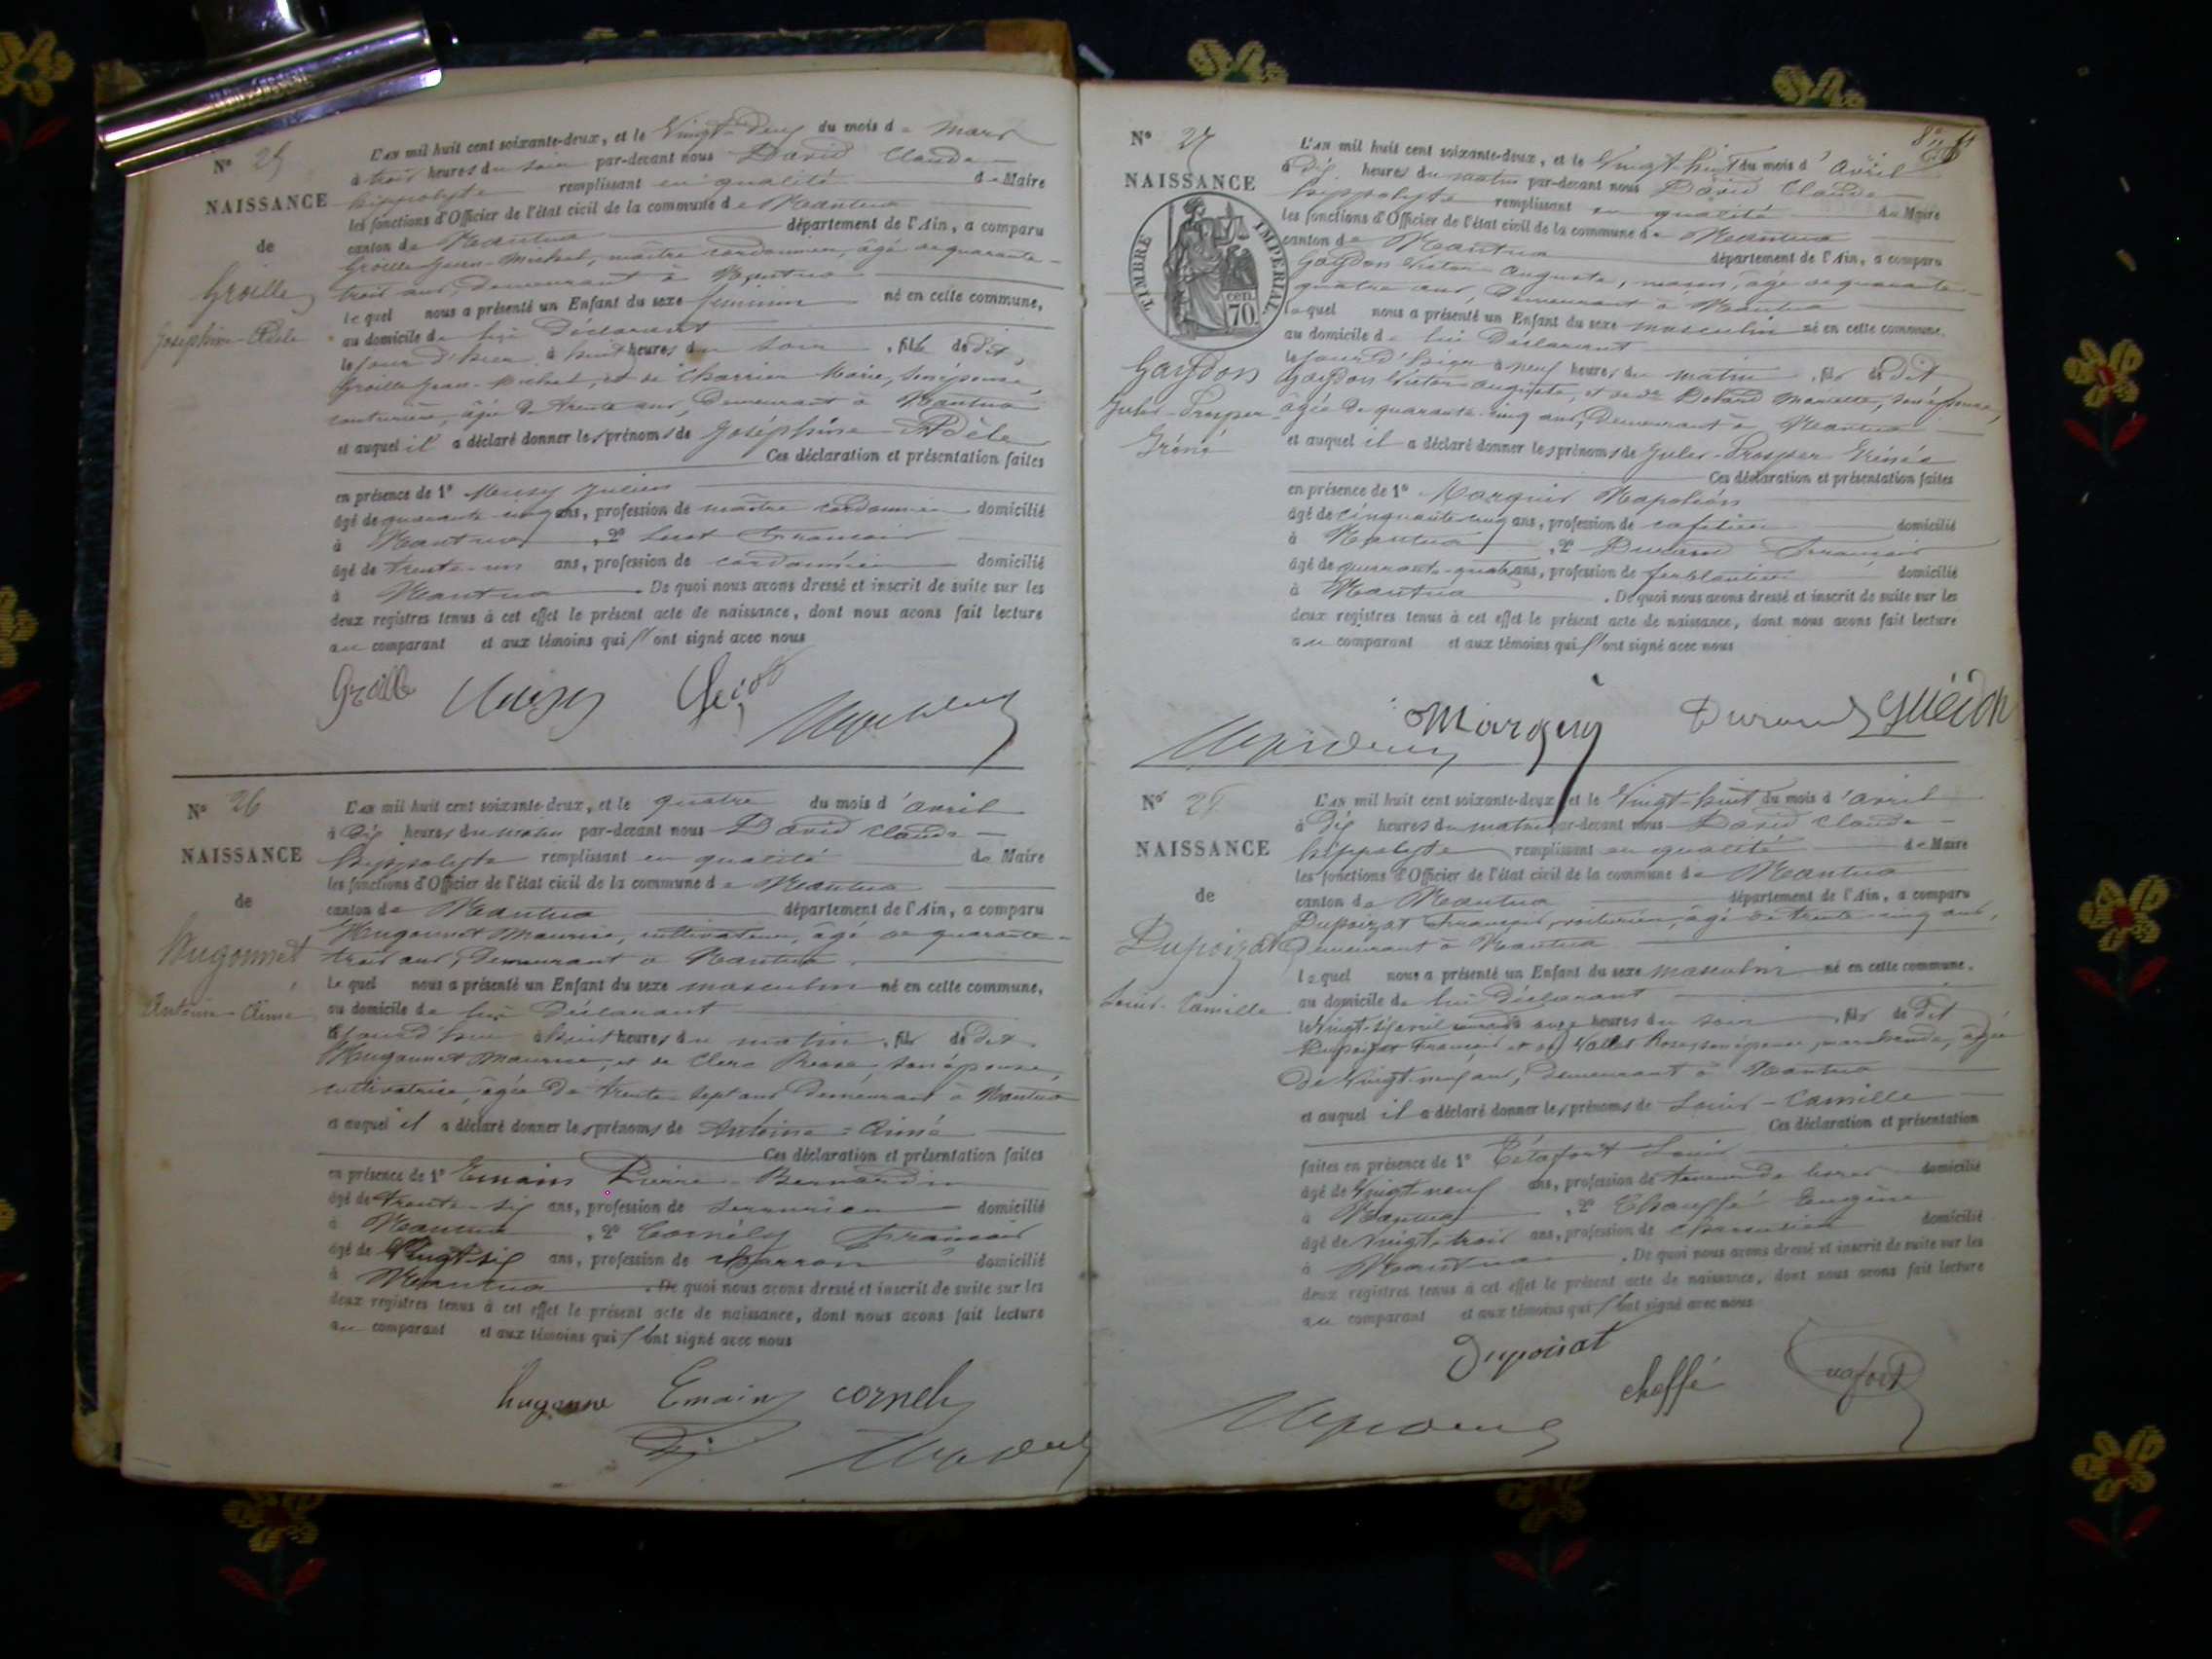 N° 25
NAISSANCE
de
Groille
Joséphine-Adèle
L'AN mil huit cent soixante-deux, et le Vingt-deux du mois de Mars
à trois heures du soir par-devant nous David Claude
hippolyte remplissant en qualité de Maire
les fonctions d'Officier de l'état civil de la commune de Nantua
canton de Nantua département de l'Ain, a comparu
Groille Jean-Michel, maître cordonnier, âgé de quarante-
trois ans, demeurant à Nantua
Lequel nous a présenté un Enfant du sexe féminin né en cette commune,
au domicile de lui déclarant
le jour d'hier à huit heures du soir, fille de dit
Groille Jean-Michel, et de Charrier Marie, son épouse,
couturière, âgée de trente ans, demeurant à Nantua
et auquel il a déclaré donner les prénoms de Joséphine Adèle
Ces déclaration et présentation faites
en présence de 1° Julien
âgé de quarante-cinq ans, profession de maître cordonnier domicilié
à Nantua, 2° François
âgé de trente-un ans, profession de cordonnier domicilié
à Nantua. De quoi nous avons dressé et inscrit de suite sur les
deux registres tenus à cet effet le présent acte de naissance, dont nous avons fait lecture
au comparant et aux témoins qui l'ont signé avec nous
Groille
N° 26
NAISSANCE
de
Hugonnet
Antoine-Aimé
L'AN mil huit cent soixante-deux, et le quatre du mois d'avril
à dix heures du matin par-devant nous David Claude
hippolyte remplissant en qualité de Maire
les fonctions d'Officier de l'état civil de la commune de Nantua
canton de Nantua département de l'Ain, a comparu
Hugonnet Maurice, cultivateur, âgé de quarante-
trois ans, demeurant à Nantua
Lequel nous a présenté un Enfant du sexe masculin né en cette commune,
au domicile de lui déclarant
le jour d'hier à huit heures du matin, fils de dit
Hugonnet Maurice, et de Clerc son épouse,
cultivatrice, âgée de trente-sept ans demeurant à Nantua
et auquel il a déclaré donner les prénoms de Antoine-Aimé
Ces déclaration et présentation faites
en présence de 1° Emain Pierre-Bernardin
âgé de trente-six ans, profession de serrurier domicilié
à Nantua, 2° Cornély François
âgé de Vingt-six ans, profession de charron domicilié
à Nantua. De quoi nous avons dressé et inscrit de suite sur les
deux registres tenus à cet effet le présent acte de naissance, dont nous avons fait lecture
au comparant et aux témoins qui l'ont signé avec nous
hugonne Emain cornely
N° 27
NAISSANCE
TIMBRE IMPERIAL
cen. 70
Gaÿdon
Jules-Prosper
Iréné
L'AN mil huit cent soixante-deux, et le Vingt-huit du mois d'avril
à dix heures du matin par-devant nous David Claude
hippolyte remplissant en qualité de Maire
les fonctions d'Officier de l'état civil de la commune de Nantua
canton de Nantua département de l'Ain, a comparu
Gaÿdon Victor Auguste, maçon, âgé de quarante-
quatre ans, demeurant à Nantua
Lequel nous a présenté un Enfant du sexe masculin né en cette commune.
au domicile de lui déclarant
le jour d'hier à neuf heures du matin, fils de dit
Gaÿdon Victor auguste, et de son épouse,
âgée de quarante-cinq ans, demeurant à Nantua
et auquel il a déclaré donner les prénoms de Jules-Prosper Irénée
Ces déclaration et présentation faites
en présence de 1° Marquis Napoléon
âgé de cinquante-cinq ans, profession de cafetier domicilié
à Nantua, 2° Durand François
âgé de quarante-quatre ans, profession de ferblantier domicilié
à Nantua. De quoi nous avons dressé et inscrit de suite sur les
deux registres tenus à cet effet le présent acte de naissance, dont nous avons fait lecture
au comparant et aux témoins qui l'ont signé avec nous
Durand
N° 28
NAISSANCE
de
Dupoizat
Louis-Camille
L'AN mil huit cent soixante-deux, et le Vingt-huit du mois d'avril
à dix heures du matin par-devant nous David Claude
hippolyte remplissant en qualité de Maire
les fonctions d'Officier de l'état civil de la commune de Nantua
canton de Nantua département de l'Ain, a comparu
Dupoizat François, voiturier, âgé de trente-cinq ans,
demeurant à Nantua
Lequel nous a présenté un Enfant du sexe masculin né en cette commune.
au domicile de lui déclarant
le Vingt-six avril courant à onze heures du soir, fils de dit
Dupoizat François et de Vallet Rose, son épouse, marchande, âgée
de Vingt-neuf ans, demeurant à Nantua
et auquel il a déclaré donner les prénoms de Louis-Camille
Ces déclaration et présentation
faites en présence de 1° Louis
âgé de Vingt-neuf ans, profession de teneur de livres domicilié
à Nantua, 2° Chauffé Eugène
âgé de Vingt-trois ans, profession de domicilié
à Nantua. De quoi nous avons dressé et inscrit de suite sur les
deux registres tenus à cet effet le présent acte de naissance, dont nous avons fait lecture
au comparant et aux témoins qui l'ont signé avec nous
Dupoisat
choffé